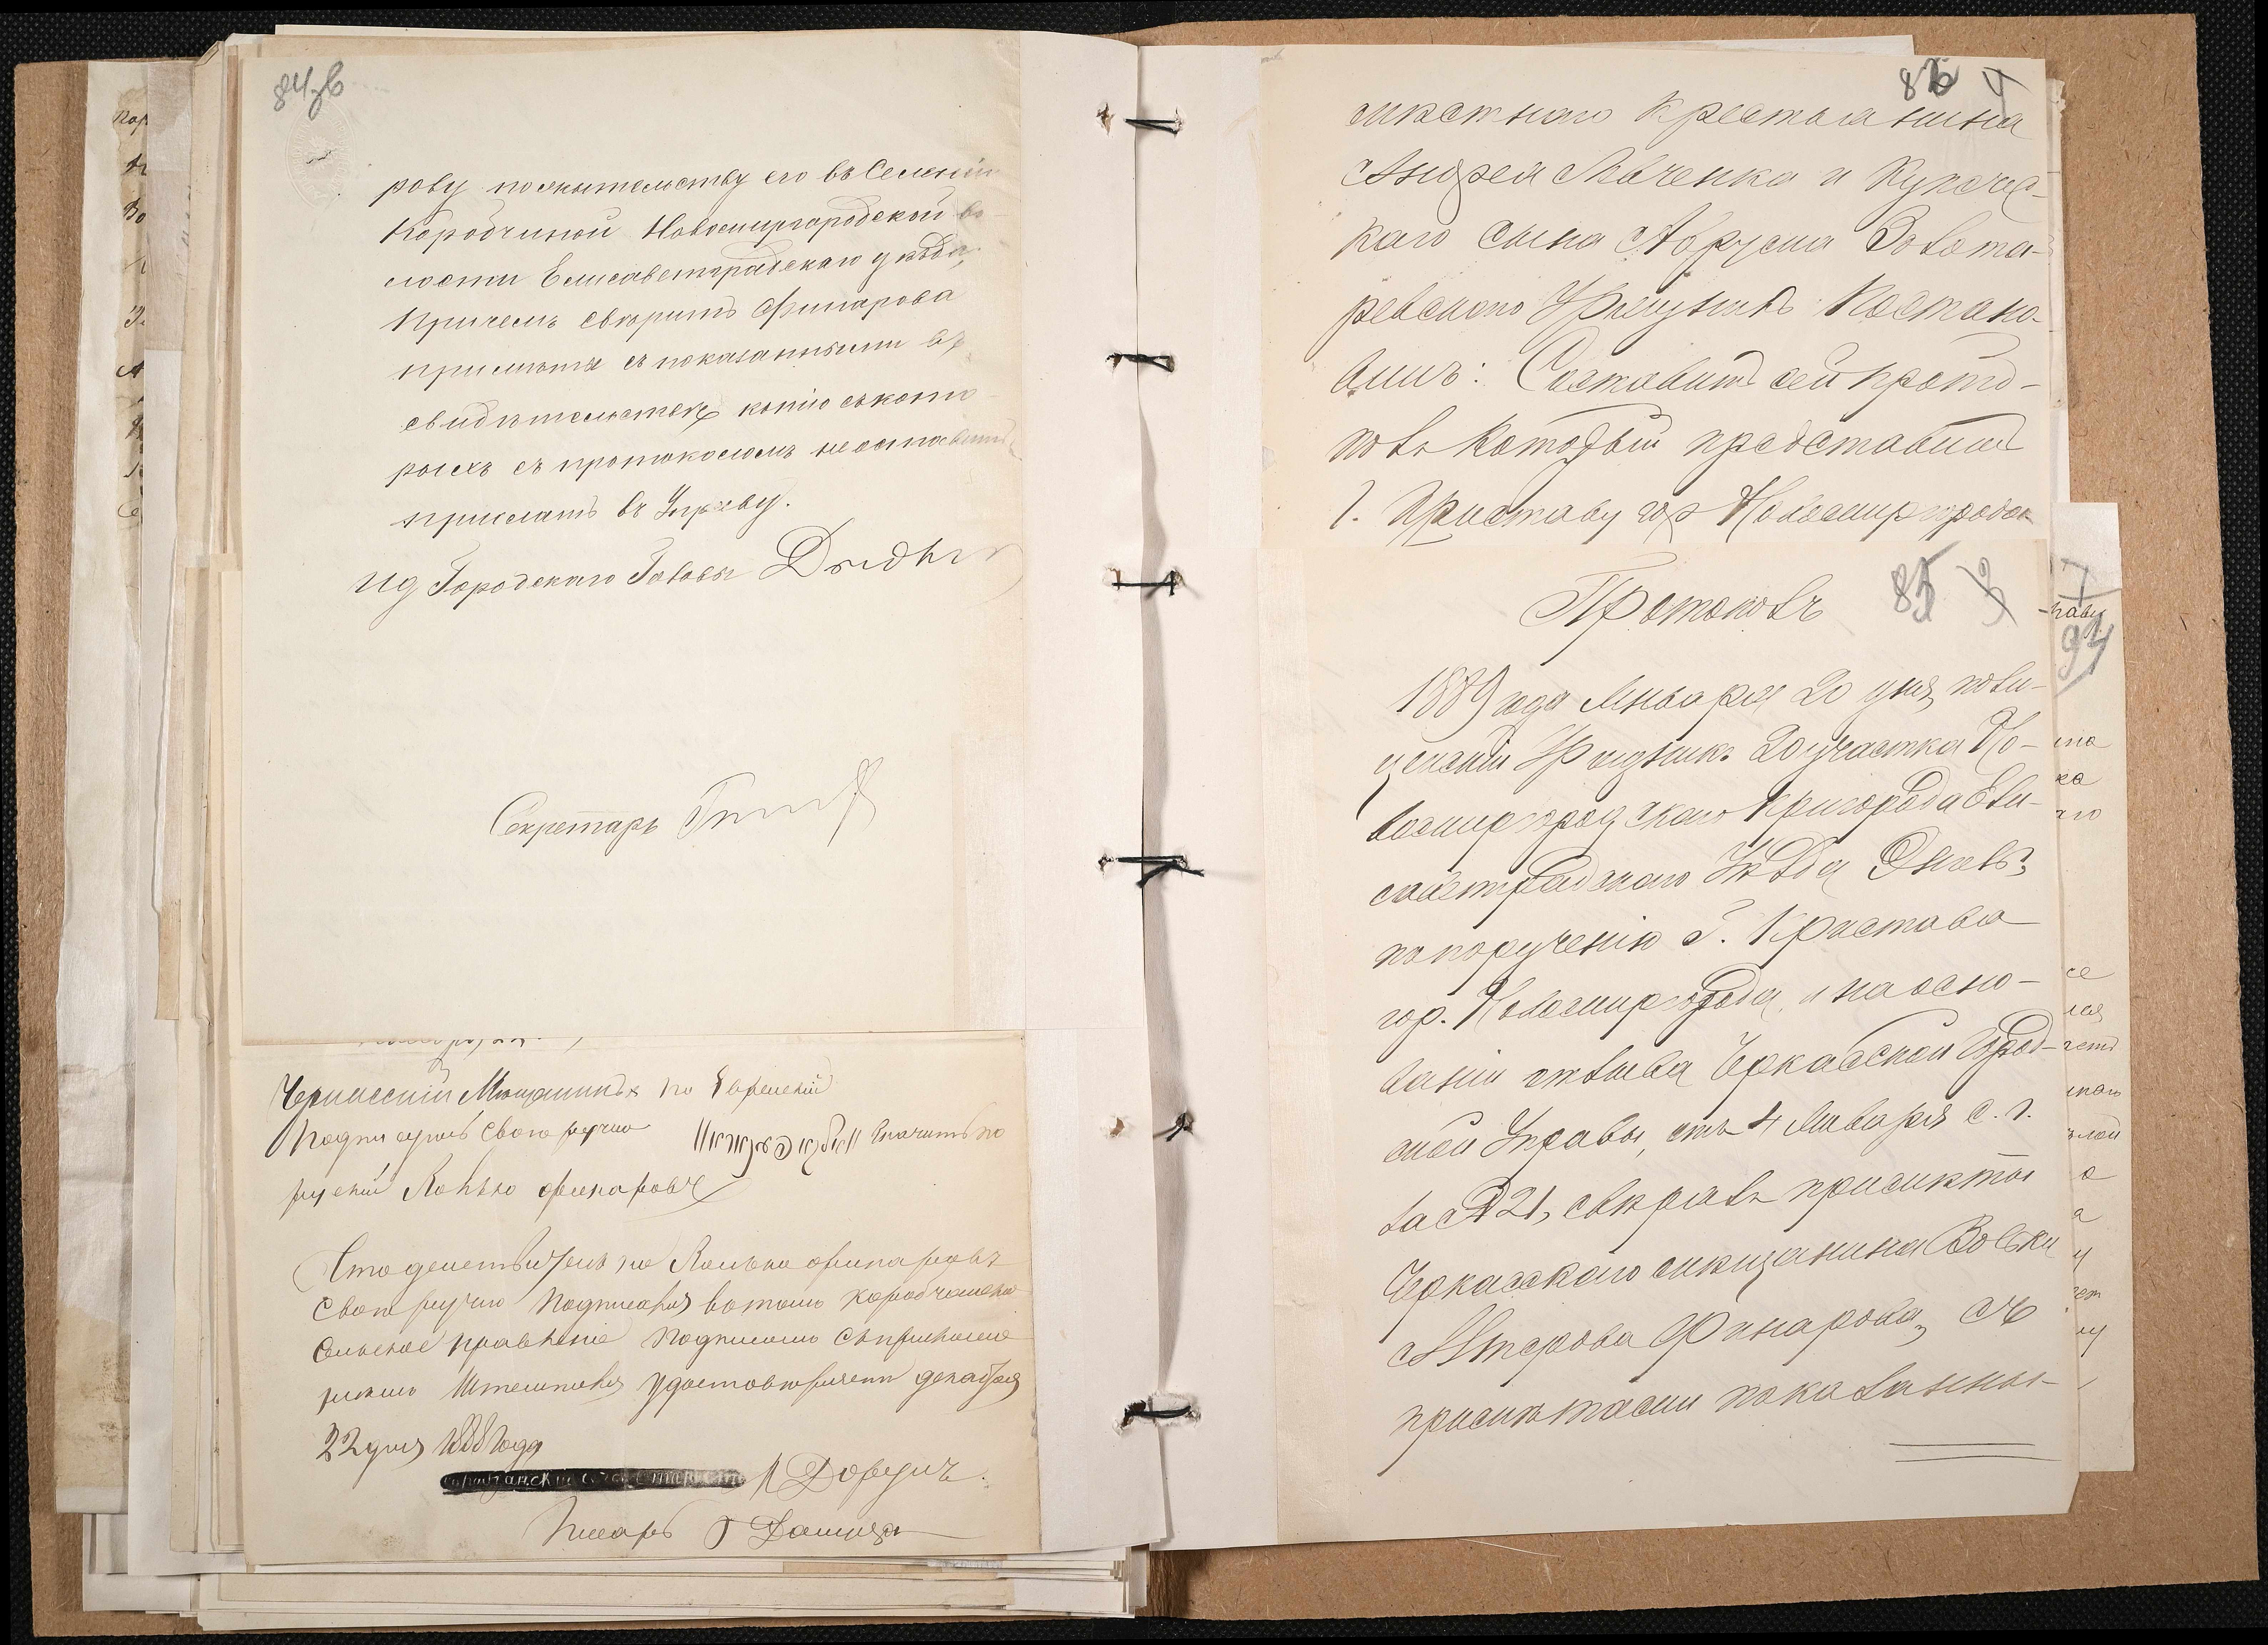 84 зв
рову по жительству его въ Селении
Коробчиной Новомиргородской во-
лости Елисаветградскаго уѣзда,
Причемъ сверить Финарова
приметы съ показанными въ
свидѣтельствѣ копию съ кото-
рыхъ съ протоколомъ не оставить
прислать въ Управу.
ид Городскаго Головы
Секретарь
Черкасский Мещанинъ по Еврейский
Подписуюсь свою ручно значить по
руский Волько Финаровъ
Что действительно Волько Финаровъ
свою ручно Подписался въ томъ Коробчанско
Сельское правление Подписомъ съ приложе
ниемъ Штемпеля удостоверяетъ декабря
22 дня 1888 года
Писарь
86 4
мѣстнаго крестьянина
Андрея Левченка и Купечес-
каго сына Абрума Золота-
ревскаго Урядникъ Постано-
вилъ: Составить сей прото-
колъ который представить
Г. Приставу гор Новомиргорода
Протоколъ
85 3
1889 года Января 20 дня, поли-
цейский Урядникъ 20 участка Но-
вомиргородскаго Пригорода Ели-
саветградскаго Уѣзда
по поручению Г. Пристава
гор. Новомиргорода, и на осно-
вании отзыва Черкасской Город-
ской Управы, отъ 4 Января с. г.
за № 21, сверялъ приметы
Черкасскаго мѣщанина Вольки
Финарова, съ
приметами показанны-
94